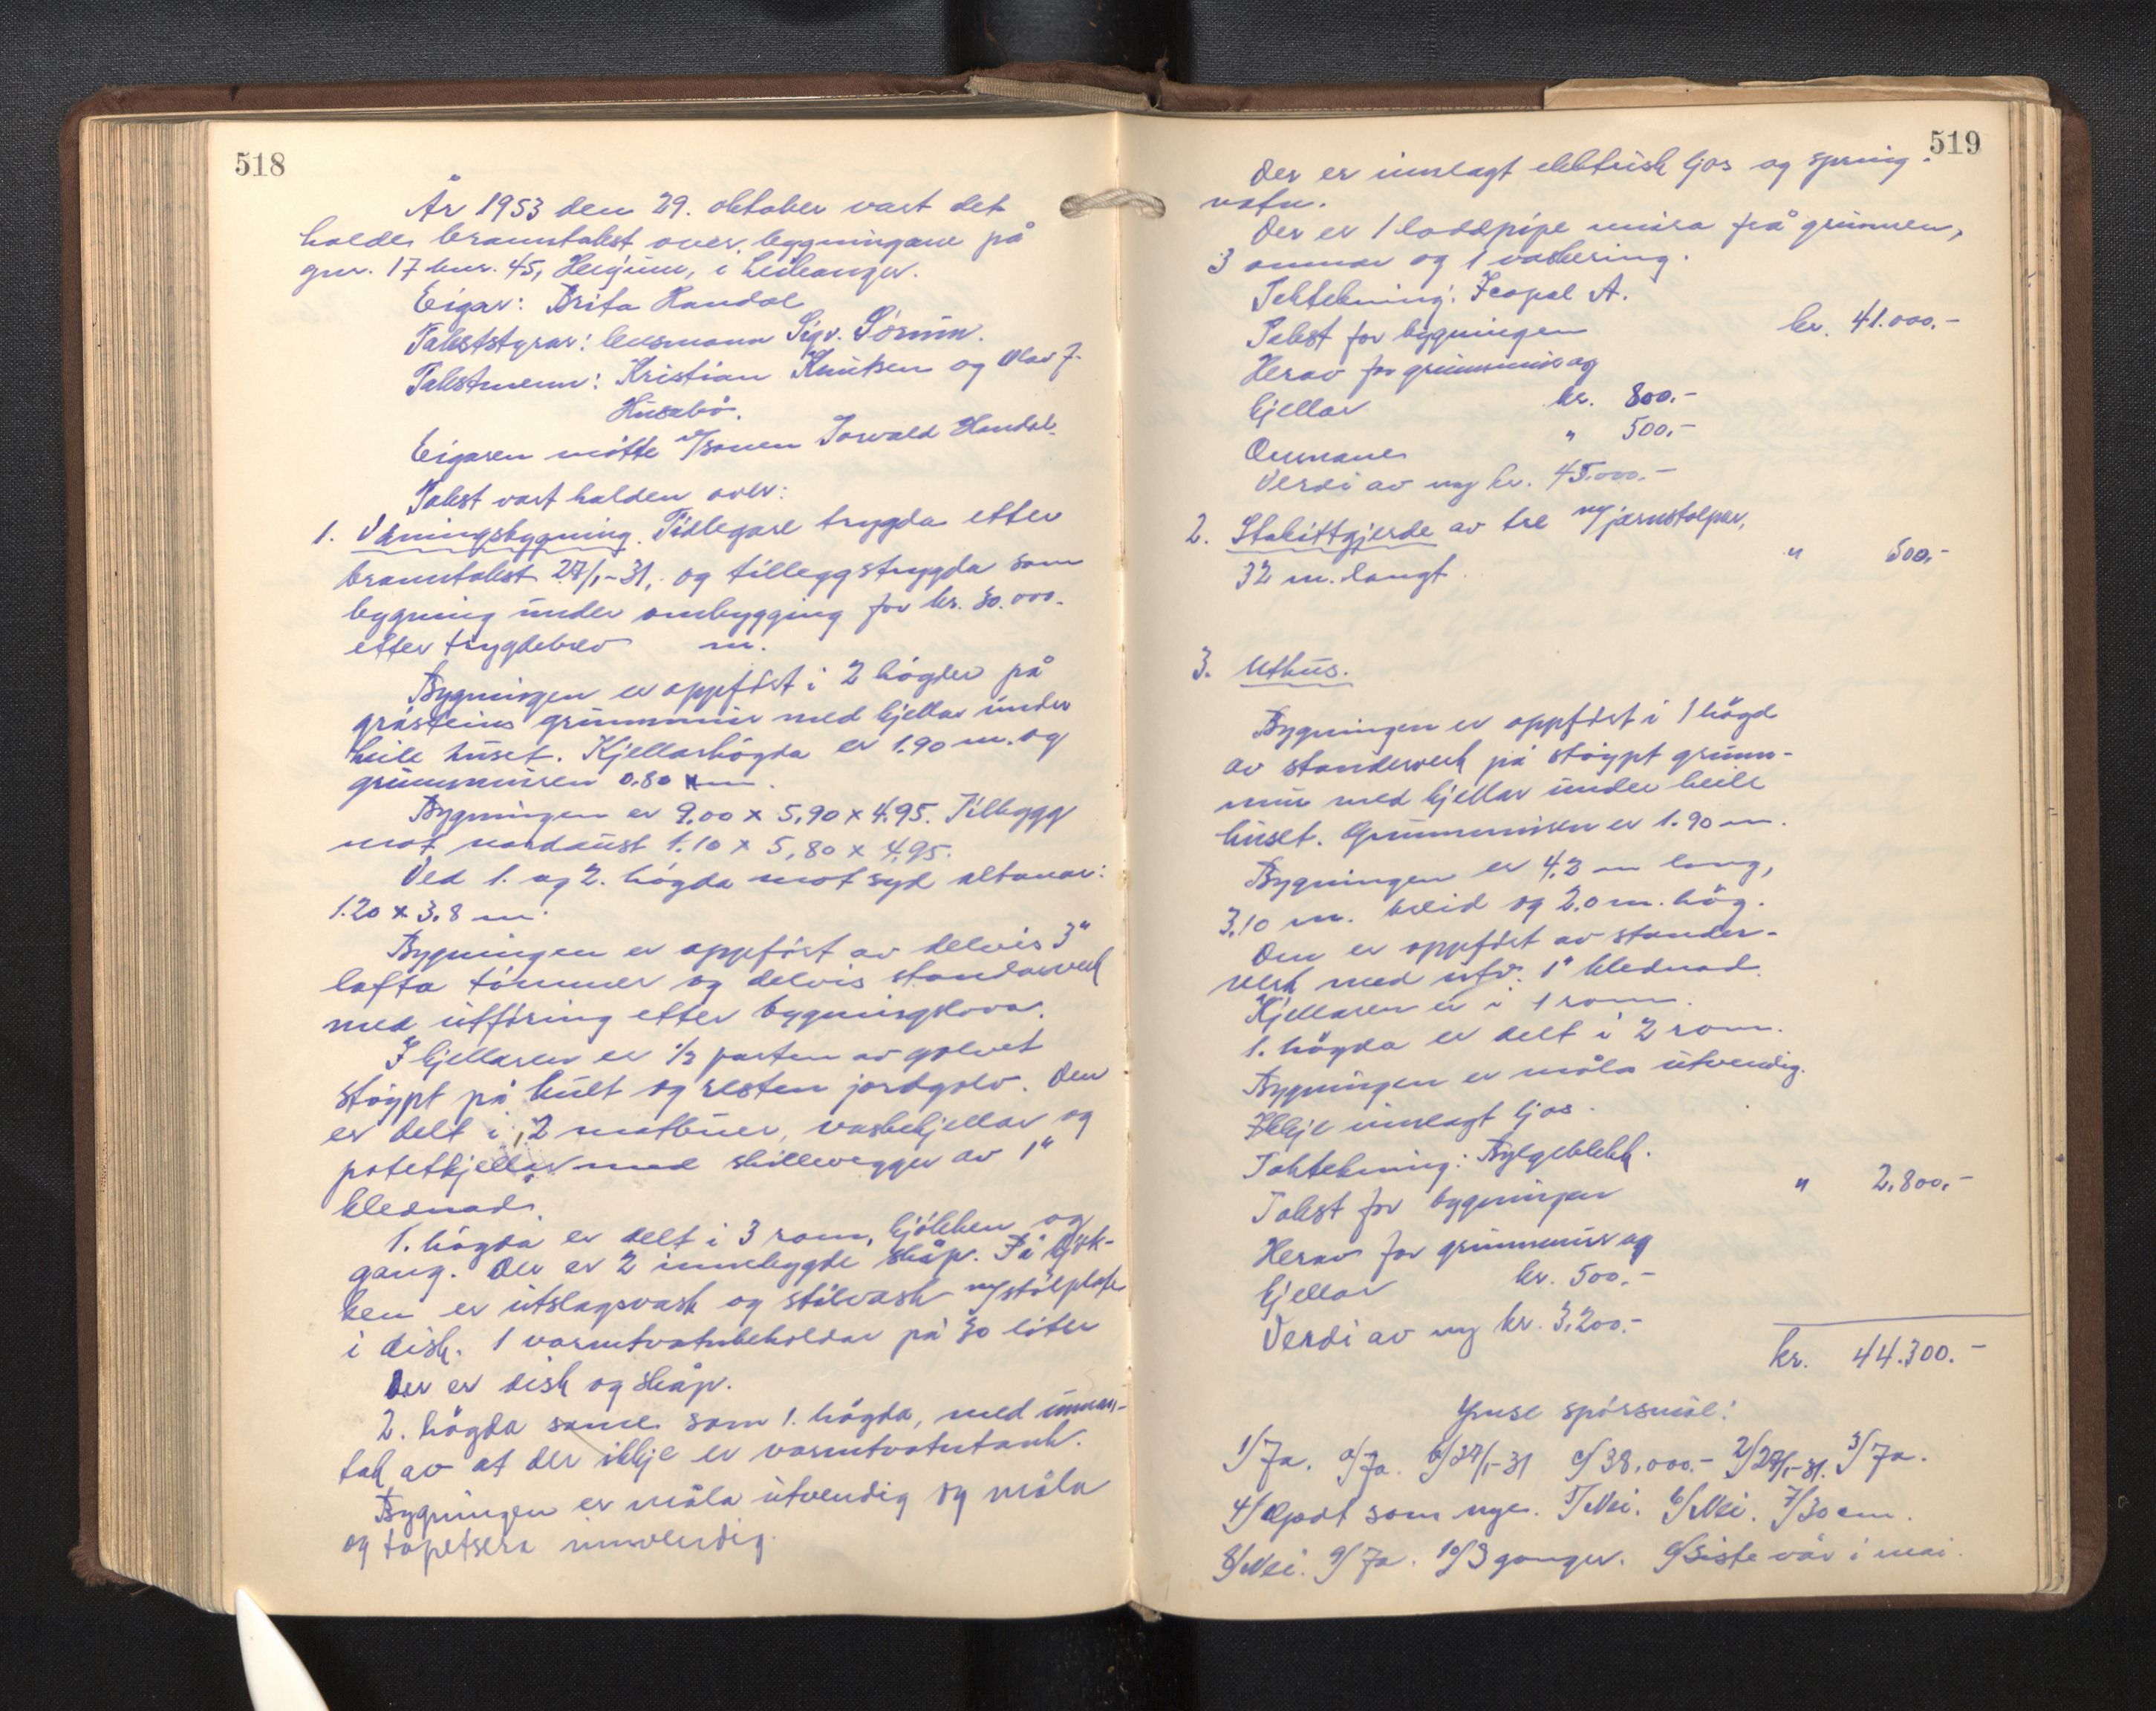 518
År 1953 den 29. oktober vart det
halde branntakst over bygningane på
gnr. 17 bnr. 45, Henjum, i Leikanger.
Eigar: Brita Handal
Takststyrar: lensmann Sigv. Sørum.
Takstmenn: Kristian Knutsen og Olav J.
Husabø.
Eigaren møtte v/sonen Torvald Handal.
Takst vart halden over:
1. Våningsbygning. Tidlegare trygda etter
branntakst 27/1-31, og tilleggstrygda som
bygning under ombygging for kr. 30.000.
etter trygdebrev m.
Bygningen er oppført i 2 høgder på
gråsteins grunnmur med kjellar under
heile huset. Kjellarhøgda er 1.90 m. og
grunnmuren 0.80 m.
Bygningen er 9.00 x 5,90 x 4.95. Tilbygg
mot nordaust 1.10 x 5,80 x 4,95.
Ved 1. og 2. høgda mot syd altanar:
1.20 x 3.8 m.
Bygningen er oppført av delvis 3"
lafta tømmer og delvis standarverk
med utføring etter bygningslova.
I kjellaren er 1/2 parten av golvet
støypt på kult og resten jordgolv. Den
er delt i 2 matbuer, vaskekjellar og
potetkjellar med skillevegger av 1"
klednad.
1. høgda er delt i 3 rom, kjøkken og
gang. Der er 2 innebygde skåp. På kjøk-
ken er utslagsvask og stålvask m/stålplate
i disk. 1 varmtvatnbeholdar på 30 liter
Der er disk og skåp.
2. høgda same som 1. høgda, med unnan-
tak av at der ikkje er varmtvatntank.
Bygningen er måla utvendig og måla
og tapetsera innvendig.
519
Der er innlagt elektrisk ljos og spring-
vatn.
Der er 1 loddpipe mura frå grunnen,
3 omnar og 1 vaskering.
Taktekning: Icopal A.
Takst for bygningen kr. 41.000.-
Herav for grunnmur og
kjellar kr. 800.-
Omnane " 500.-
Verdi av ny kr. 45.000.-
2. Stakittgjerde av tre m/jarnstolpar,
32 m. langt. " 500.-
3. Uthus.
Bygningen er oppført i 1 høgd
av standerverk på støypt grunn-
mur med kjellar under heile
huset. Grunnmuren er 1.90 m.
Bygningen er 4,2 m lang,
3,10 m. breid og 2.0 m. høg.
Den er oppført av stander-
verk med utv. 1" klednad.
Kjellaren er i 1 rom.
1. høgda er delt i 2 rom.
Bygningen er måla utvendig.
Ikkje innlagt ljos.
Taktekning: Bylgeblekk.
Takst for bygningen " 2.800.-
Herav for grunnmur og
kjellar kr. 500.-
Verdi av ny kr. 3.200.-
kr. 44.300.-
Ymse spørsmål:
1/ Ja. a/ Ja. b/ 27/1-31 c/ 38.000.- 2/ 27/1-31. 3/ Ja.
4/ Godt som nye. 5/ Nei. 6/ Nei. 7/ 30 cm.
8/ Nei. 9/ Ja. 10/ 3 gonger. a/ Siste vår i mai.